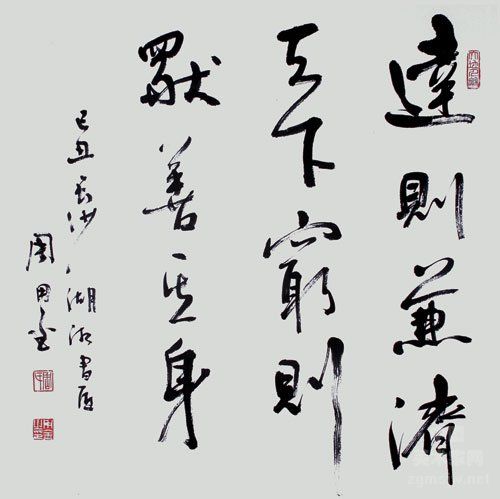 達則兼濟
天下窮則
獸善其身
己丑長沙湖湘書店
周用金
zgmsw.net